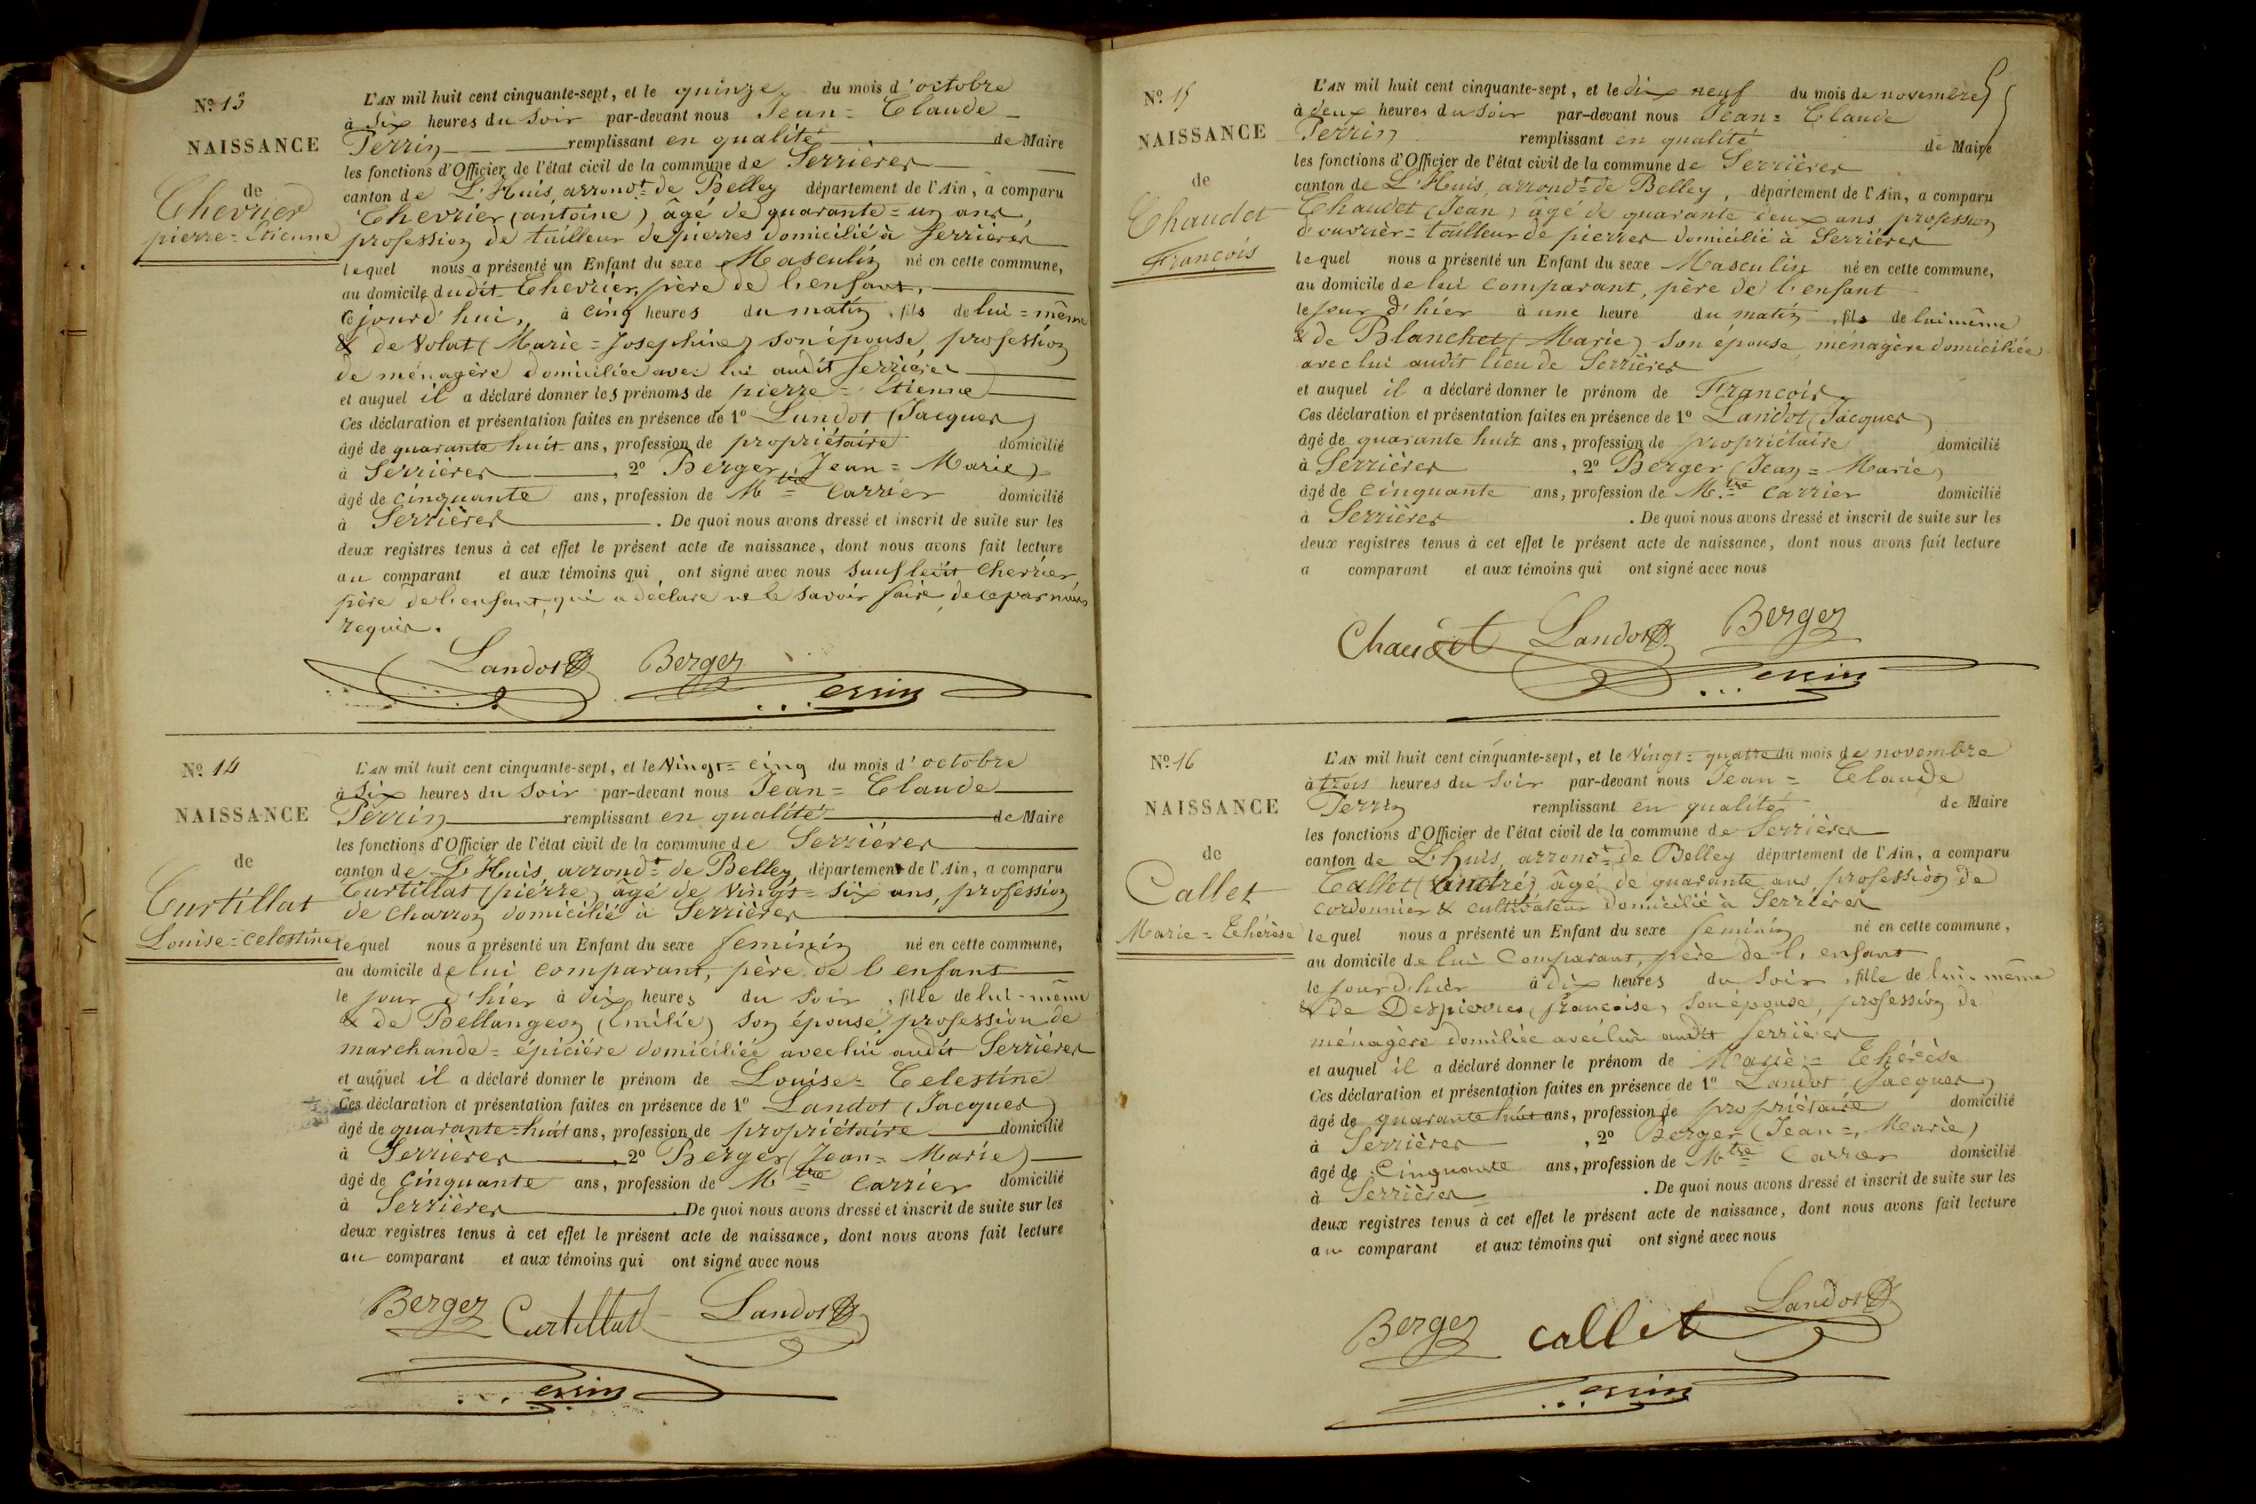 Nº 13
NAISSANCE
de
Chevrier
pierre=Etienne
L'AN mil huit cent cinquante-sept, et le quinze du mois d'octobre
à Six heures du Soir par-devant nous Jean=Claude
Perrin remplissant en qualité de Maire
les fonctions d'Officier de l'état civil de la commune de Serrières
canton de L'Huis, arrondt de Belley département de l'Ain, a comparu
Chevrier (antoine) âgé de quarante=un ans,
profession de tailleur de pierres domicilié à Serrières
lequel nous a présenté un Enfant du sexe Masculin né en cette commune,
au domicile dudit Chevrier, père de l'enfant,
ce jourd'hui, à cinq heures du matin, fils de lui=même
& de Volut (Marie=Josephine) son épouse, profession
de ménagère domiciliée avec lui audit Serrières
et auquel il a déclaré donner les prénoms de pierre=Etienne
Ces déclaration et présentation faites en présence de 1º Landot (Jacques)
âgé de quarante huit ans, profession de propriétaire domicilié
à Serrières, 2º Berger (Jean=Marie)
âgé de cinquante ans, profession de Mtre Carrier domicilié
à Serrières. De quoi nous avons dressé et inscrit de suite sur les
deux registres tenus à cet effet le présent acte de naissance, dont nous avons fait lecture
au comparant et aux témoins qui ont signé avec nous sauf ledit Chevrier,
père de l'enfant, qui a déclaré ne le savoir faire, de ce par nous
requis.
Landot Berger
Perrin
Nº 14
NAISSANCE
de
Curtillat
Louise=Celestine
L'AN mil huit cent cinquante-sept, et le Vingt=cinq du mois d'octobre
à Six heures du Soir par-devant nous Jean=Claude
Perrin remplissant en qualité de Maire
les fonctions d'Officier de l'état civil de la commune de Serrières
canton de L'Huis, arrondt de Belley, département de l'Ain, a comparu
Curtillat (pierre) âgé de Vingt=Six ans, profession
de Charron domicilié à Serrières
lequel nous a présenté un Enfant du sexe feminin né en cette commune,
au domicile de lui comparant, père de l'enfant
le jour d'hier à dix heures du Soir, fille de lui=même
& de Bellangeon (Emilie) son épouse, profession de
marchande=épicière domiciliée avec lui audit Serrières
et auquel il a déclaré donner le prénom de Louise=Celestine
Ces déclaration et présentation faites en présence de 1º Landot (Jacques)
âgé de quarante=huit ans, profession de propriétaire domicilié
à Serrières, 2º Berger (Jean=Marie)
âgé de cinquante ans, profession de Mtre Carrier domicilié
à Serrières. De quoi nous avons dressé et inscrit de suite sur les
deux registres tenus à cet effet le présent acte de naissance, dont nous avons fait lecture
au comparant et aux témoins qui ont signé avec nous
Berger Curtillat Landot
Perrin
Nº 15
NAISSANCE
de
Chaudet
François
L'AN mil huit cent cinquante-sept, et le dix neuf du mois de novembre
à deux heures du Soir par-devant nous Jean=Claude
Perrin remplissant en qualité de Maire
les fonctions d'Officier de l'état civil de la commune de Serrières
canton de L'Huis, arrondt de Belley, département de l'Ain, a comparu
Chaudet (Jean) âgé de quarante deux ans, profession
d'ouvrier=tailleur de pierres domicilié à Serrières
lequel nous a présenté un Enfant du sexe Masculin né en cette commune,
au domicile de lui comparant, père de l'enfant
le jour d'hier à une heure du matin, fils de lui même
& de Blanchet (Marie) son épouse, ménagère domiciliée
avec lui audit lieu de Serrières
et auquel il a déclaré donner le prénom de François
Ces déclaration et présentation faites en présence de 1º Landot (Jacques)
âgé de quarante huit ans, profession de propriétaire domicilié
à Serrières, 2º Berger (Jean=Marie)
âgé de cinquante ans, profession de Mtre Carrier domicilié
à Serrières. De quoi nous avons dressé et inscrit de suite sur les
deux registres tenus à cet effet le présent acte de naissance, dont nous avons fait lecture
a comparant et aux témoins qui ont signé avec nous
Chaudet Landot Berger
Perrin
Nº 16
NAISSANCE
de
Callet
Marie=Thérèse
L'AN mil huit cent cinquante-sept, et le Vingt=quatre du mois de novembre
à trois heures du Soir par-devant nous Jean=Claude
Perrin remplissant en qualité de Maire
les fonctions d'Officier de l'état civil de la commune de Serrières
canton de L'huis, arrondt de Belley département de l'Ain, a comparu
Callet (andré) âgé de quarante ans, profession de
cordonnier & cultivateur domicilié à Serrières
lequel nous a présenté un Enfant du sexe feminin né en cette commune,
au domicile de lui comparant, père de l'enfant
le jour d'hier à dix heures du Soir, fille de lui-même
& de Despierres (françoise) son épouse, profession de
ménagère domiliée avec lui audit Serrières
et auquel il a déclaré donner le prénom de Marie=Thérèse
Ces déclaration et présentation faites en présence de 1º Landot (Jacques)
âgé de quarante huit ans, profession de propriétaire domicilié
à Serrières, 2º Berger (Jean=Marie)
âgé de Cinquante ans, profession de Mtre Carrier domicilié
à Serrières. De quoi nous avons dressé et inscrit de suite sur les
deux registres tenus à cet effet le présent acte de naissance, dont nous avons fait lecture
au comparant et aux témoins qui ont signé avec nous
Berger Callet Landot
Perrin